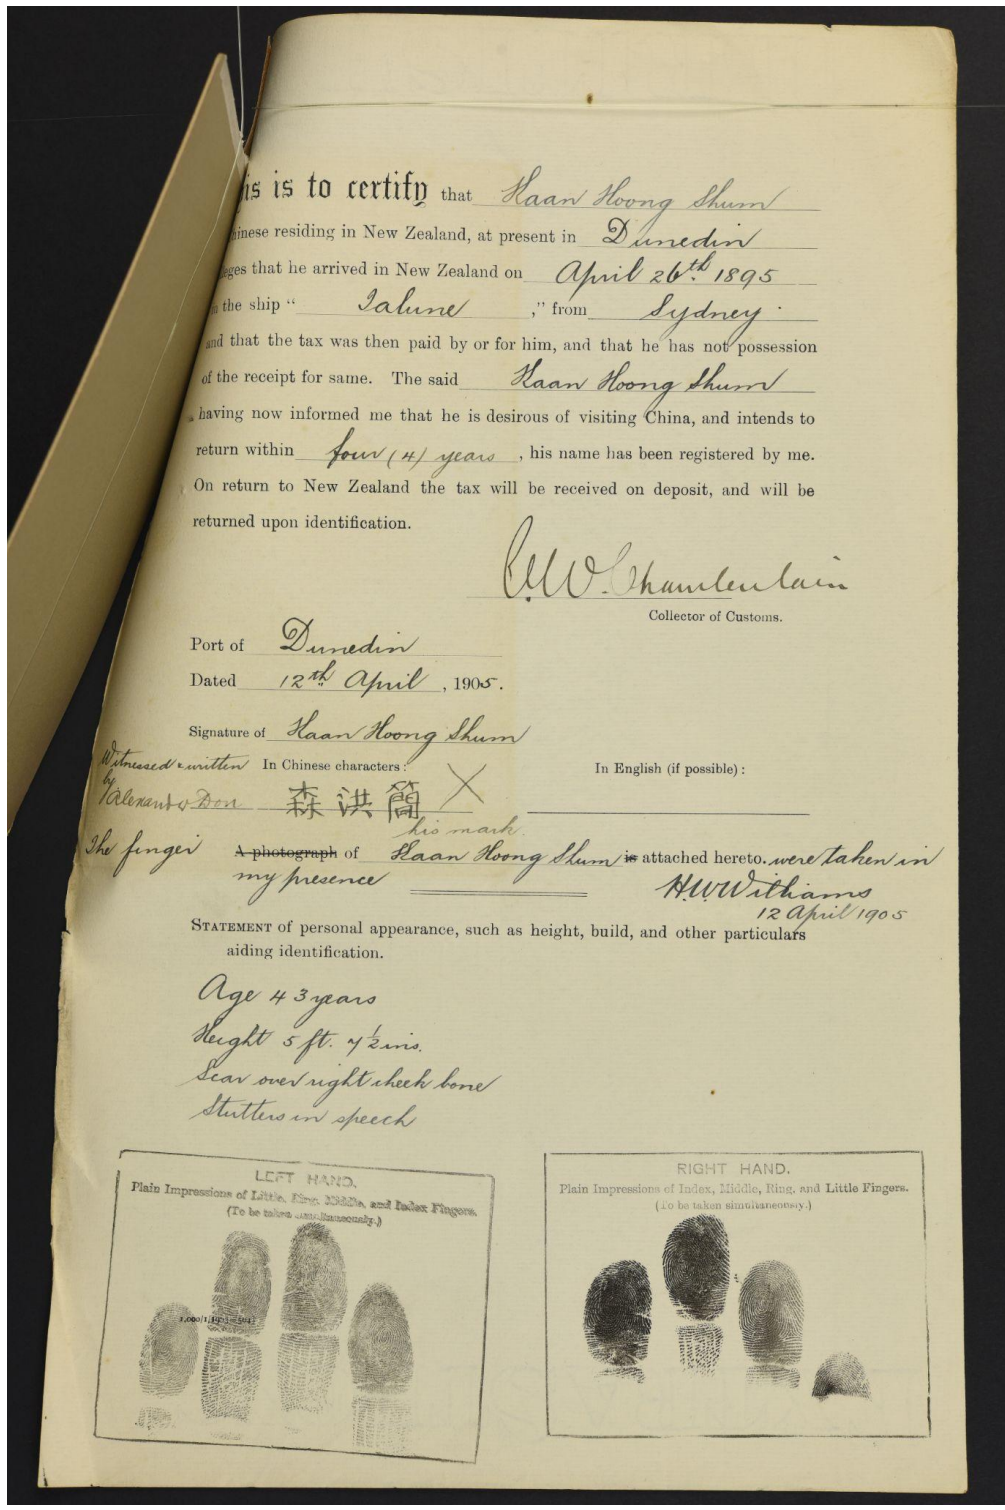 is is to certify that Haan Hoong Shum
hinese residing in New Zealand, at present in Dunedin
eges that he arrived in New Zealand on April 26th. 1895
n the ship “ Talune ,” from Sydney
and that the tax was then paid by or for him, and that he has not possession
of the receipt for same. The said Haan Hoong Shum
having now informed me that he is desirous of visiting China, and intends to
return within four (4) years , his name has been registered by me.
On return to New Zealand the tax will be received on deposit, and will be
returned upon identification.
C.W. Chamberlain
Collector of Customs.
Port of Dunedin
Dated 12th. April , 1905.
Signature of Haan Hoong Shum
Witnessed & written
by
Alexander Don
In Chinese characters:
森洪簡 X
his mark.
In English (if possible):
The finger A photograph of Haan Hoong Shum is attached hereto. were taken in
my presence
H.W. Williams
12 April 1905
STATEMENT of personal appearance, such as height, build, and other particulars
aiding identification.
Age 43 years
Height 5 ft. 7 1/2 ins.
Scar over right cheek bone
Stutters in speech
LEFT HAND.
Plain Impressions of Little, Ring, Middle, and Index Fingers.
(To be taken simultaneously.)
RIGHT HAND.
Plain Impressions of Index, Middle, Ring, and Little Fingers.
(To be taken simultaneously.)